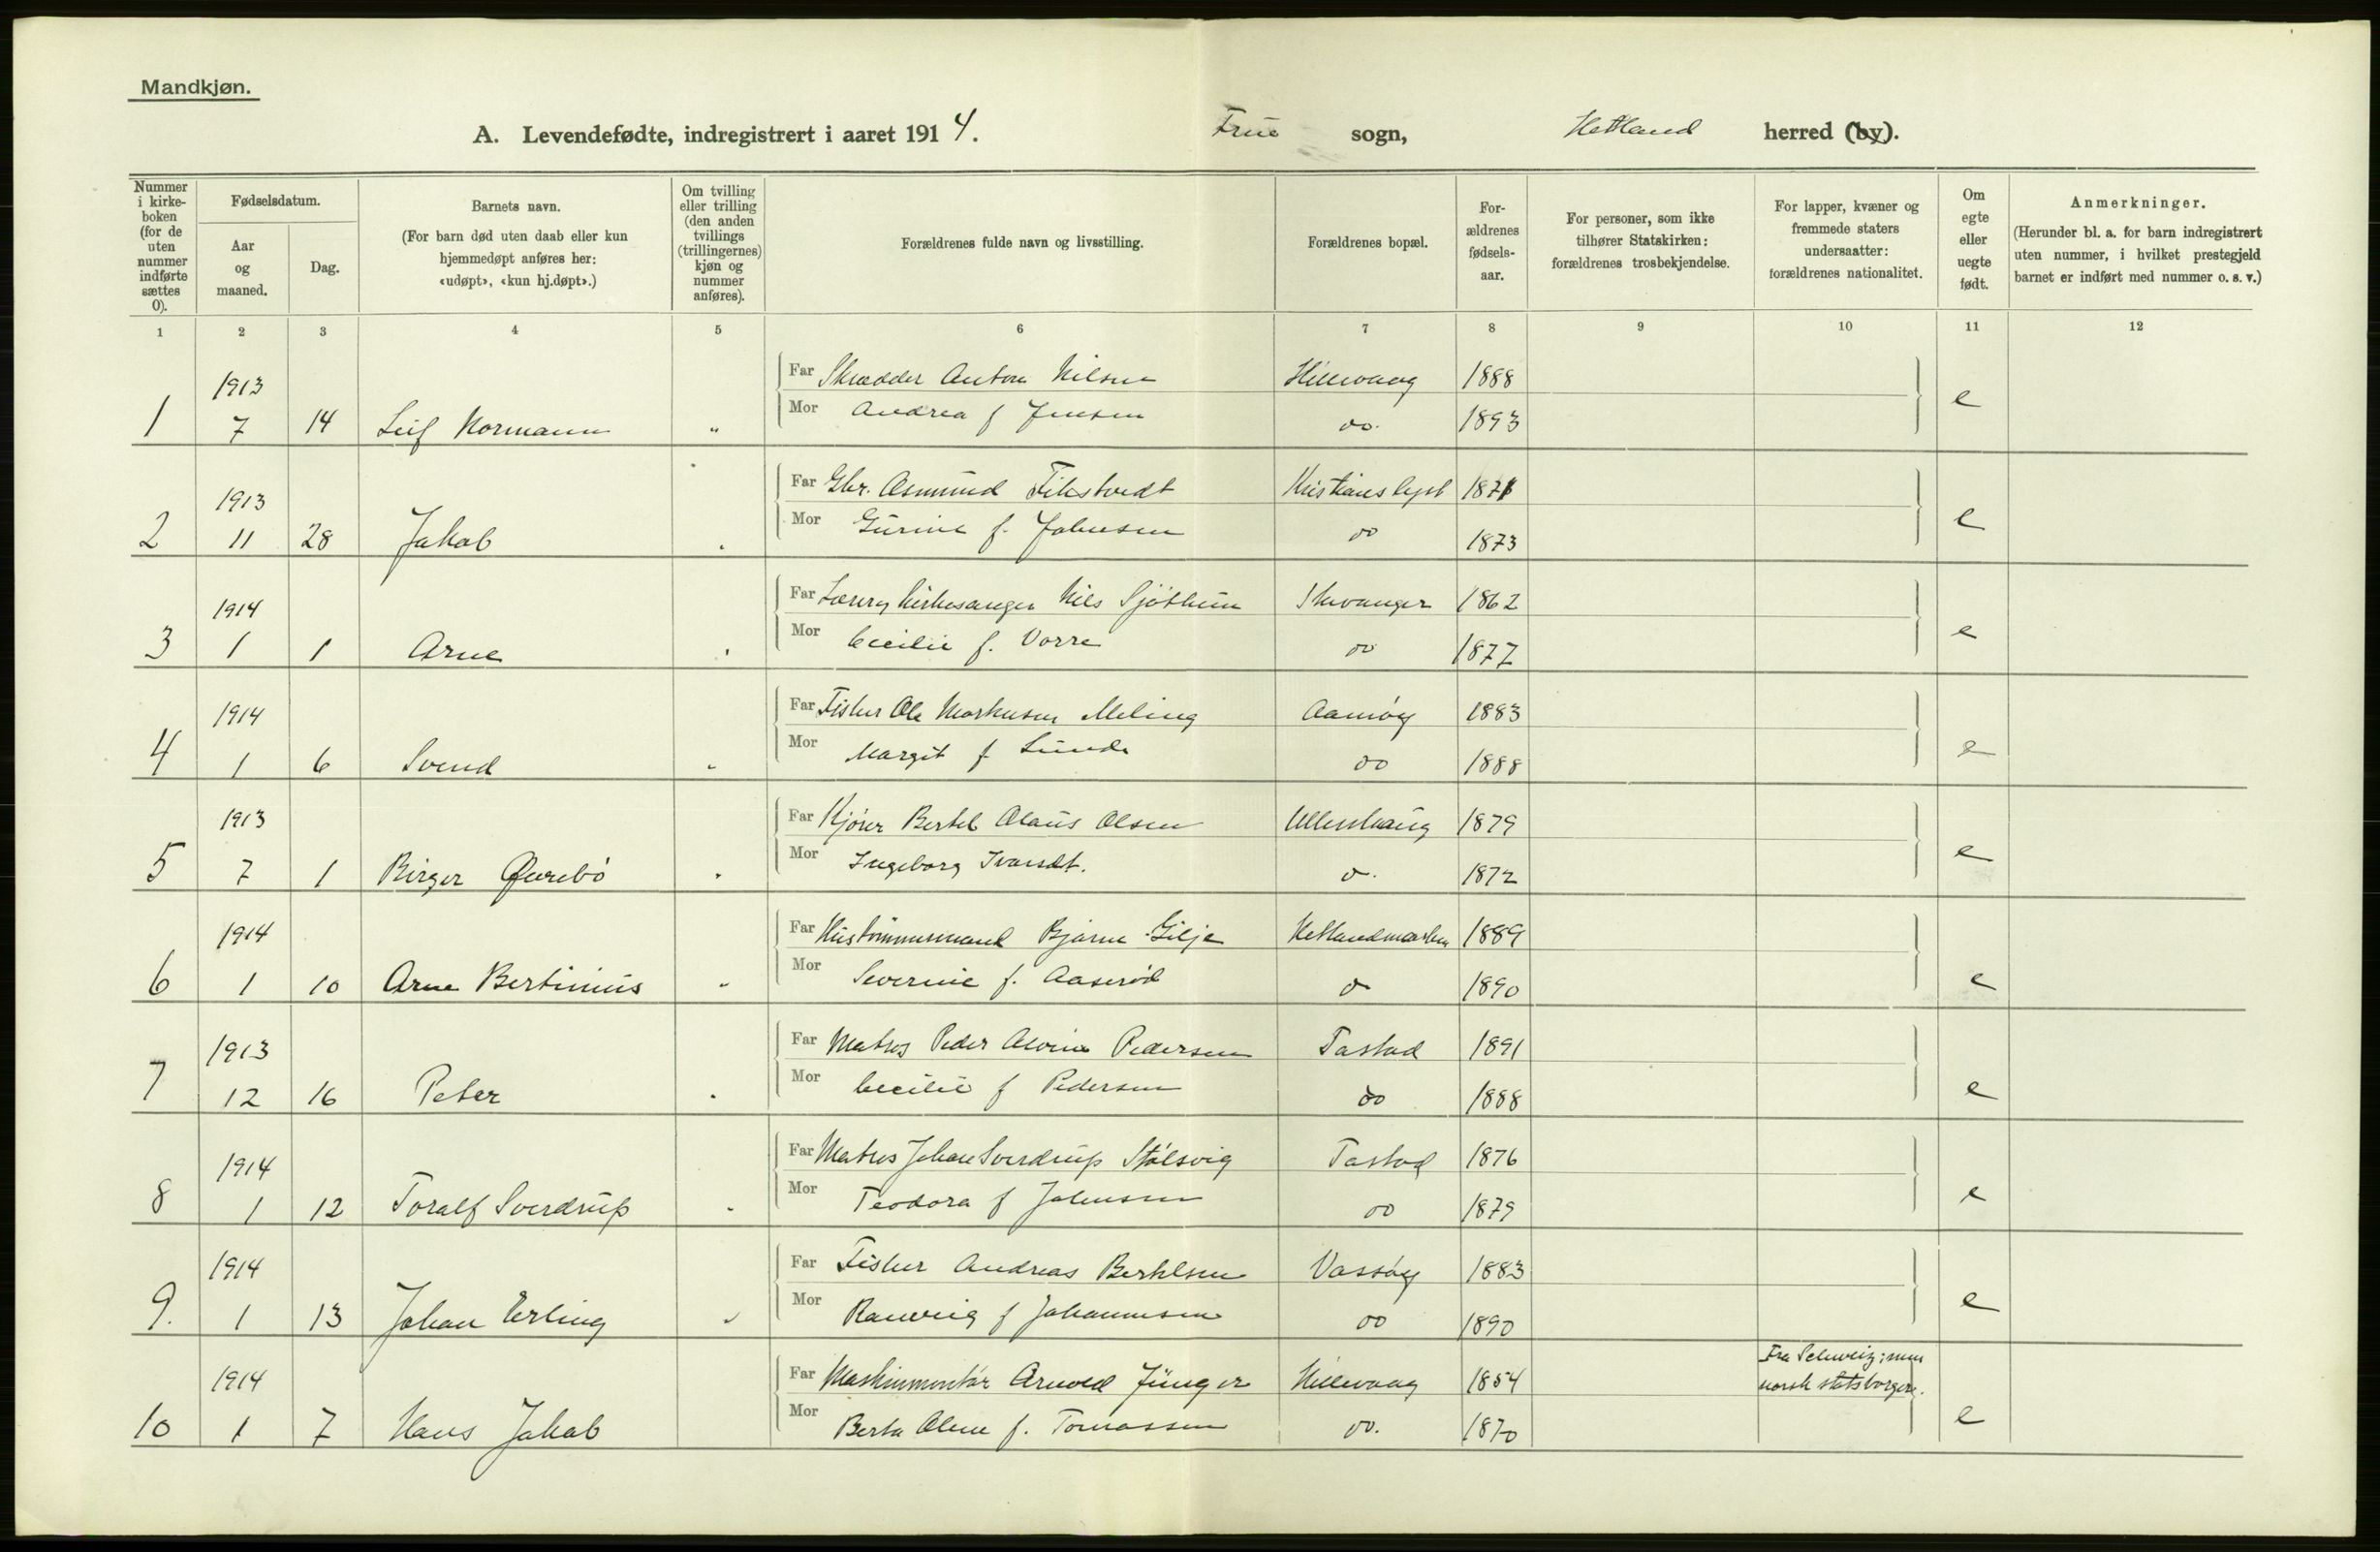 Mandkjøn.
A. Levendefødte, indregistrert i aaret 1914. Frue sogn, Hetland herred (by).
Nummer i kirke-boken (for de uten nummer indførte sættes 0).
Fødselsdatum.
Aar og maaned.
Dag.
Barnets navn.
(For barn død uten daab eller kun hjemmedøpt anføres her: «udøpt», «kun hj.døpt».)
Om tvilling eller trilling (den anden tvillings (trillingernes) kjøn og nummer anføres).
Forældrenes fulde navn og livsstilling.
Forældrenes bopæl.
For-ældrenes fødsels-aar.
For personer, som ikke tilhører Statskirken: forældrenes trosbekjendelse.
For lapper, kvæner og fremmede staters undersaatter: forældrenes nationalitet.
Om egte eller uegte født.
Anmerkninger.
(Herunder bl. a. for barn indregistrert uten nummer, i hvilket prestegjeld barnet er indført med nummer o. s. v.)
1 2 3 4 5 6 7 8 9 10 11 12
1913 Far Skrædder Anton Nilsen Hillevaag 1888
1 7 14 Leif Normann " Mor Andrea f Jensen do. 1893 e
1913 Far Gbr. Asmund Fikstvedt Kristianslyst 1871
2 11 28 Jakob Mor Gurine f. Johnsen do 1873 e
1914 Far Lærer, kirkesanger Nils Sjøthun Stavanger 1862
3 1 1 Arne Mor Cecilie f. Vorre do 1877 e
1914 Far Fisker Ole Markusen Meling Aamøy 1883
4 1 6 Svend " Mor Margit f Lunde do 1888 e
1913 Far Kjører Bertel Olaus Olsen Ullenhaug 1879
5 7 1 Birger Mor Ingeborg Ivarsdt. do. 1872 e
1914 Far Hustømmermand Bjarne Gilje Hetlandmarken 1889
6 1 10 Arne Bertinius " Mor Severine f. Aaserød do 1890 e
1913 Far Matros Peder Alvin Pedersen Tastad 1891
7 12 16 Peter Mor Cecilie f Pedersen do 1888 e
1914 Far Matros Johan Sverdrup Stølsvig Tastad 1876
8 1 12 Toralf Sverdrup Mor Teodora f Johnsen do 1879 e
1914 Far Fisker Andreas Bertelsen Vassøy 1883
9. 1 13 Johan Erling " Mor Ranveig f Johannesen do 1890 e
1914 Far Maskinmontør Arnold Jünger Hillevaag 1854 Fra Schweiz; nu norsk statsborger.
10 1 7 Hans Jakob Mor Berta Oline f. Tomassen do. 1870 e